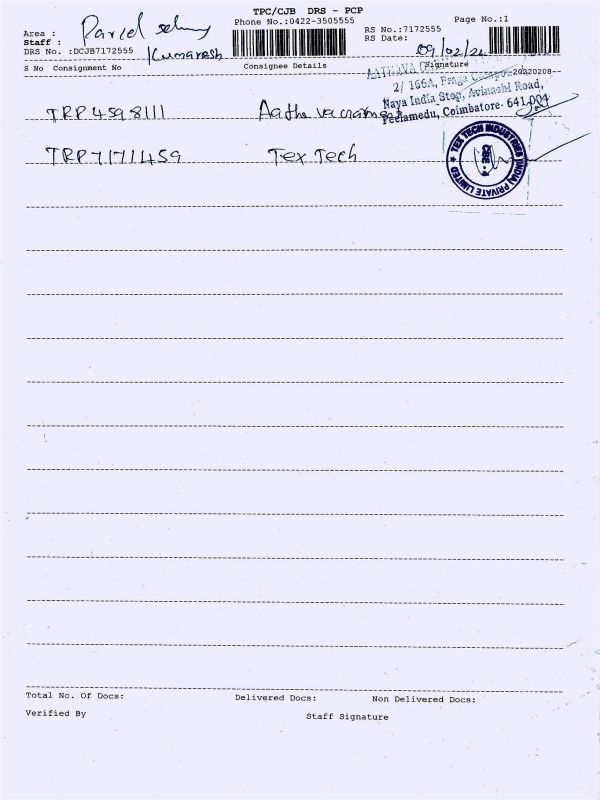 TPC/CJB DRS - PCP
Phone No.:0422-3505555
Page No.:1
Area : Parcel
Staff : Kumaresh
RS No.:7172555
DRS No. :DCJB7172555
RS Date: 09/02/22
S No Consignment No Consignee Details Signature
20220208
2/ 166A,
Naya India Stop, Avinashi Road,
Peelamedu, Coimbatore- 641 004
TRP 4598111
TRP 7171459 Tex Tech
TEX TECH INDUSTRIES (INDIA) PRIVATE LIMITED
CBE - 4
Total No. Of Docs: Delivered Docs: Non Delivered Docs:
Verified By Staff Signature